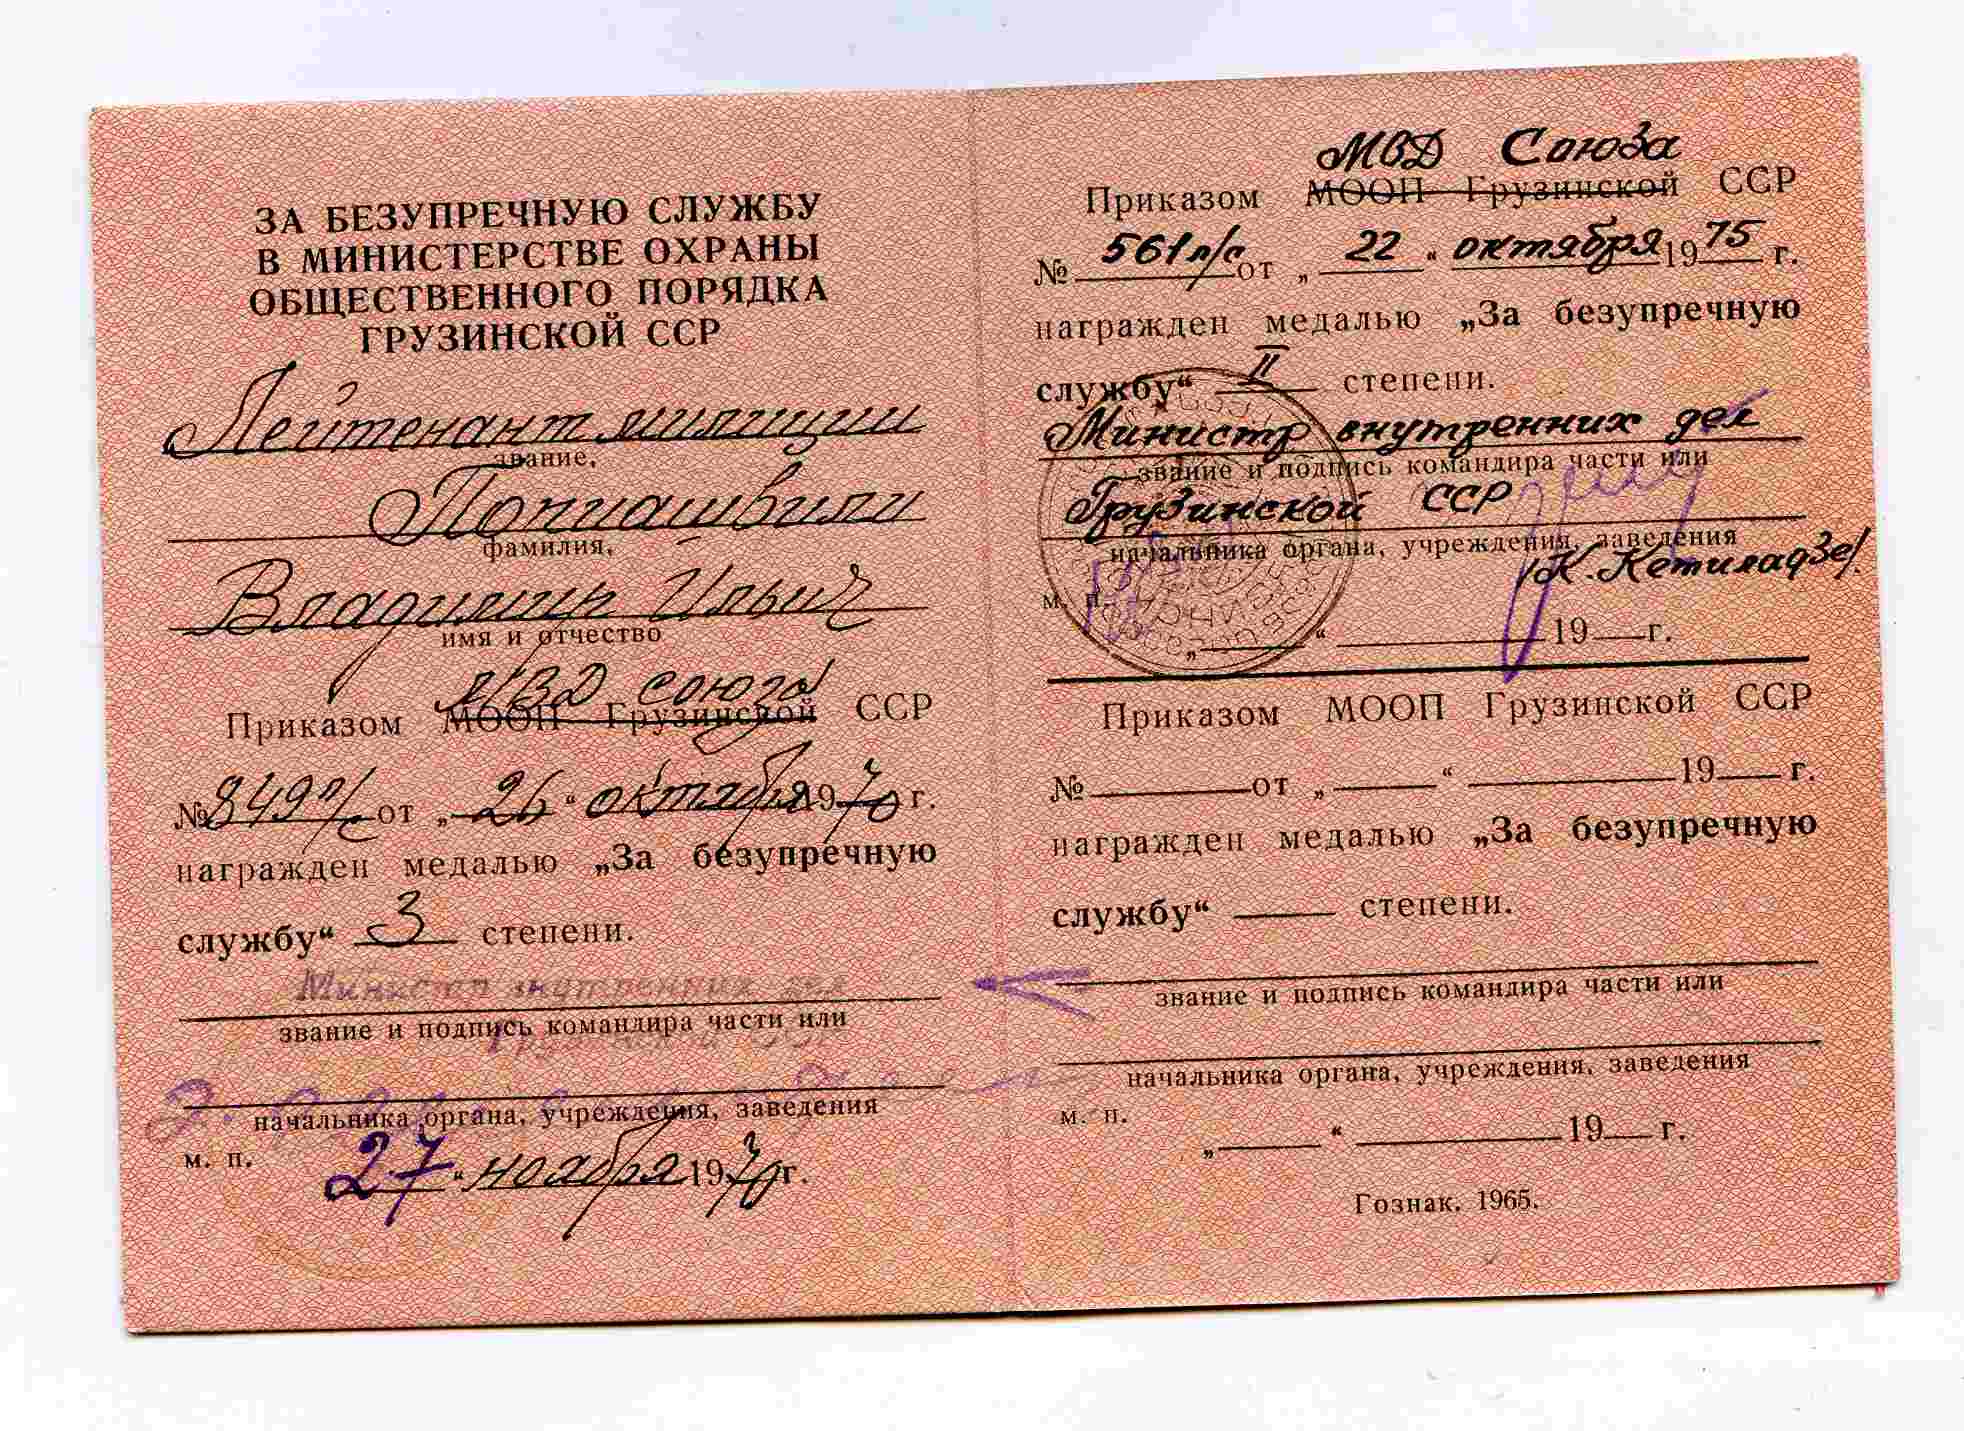 ЗА БЕЗУПРЕЧНУЮ СЛУЖБУ
В МИНИСТЕРСТВЕ ОХРАНЫ
ОБЩЕСТВЕННОГО ПОРЯДКА
ГРУЗИНСКОЙ ССР
Лейтенант милиции
звание,
Попиашвили
фамилия,
Владимир Ильич
имя и отчество
МВД союза
Приказом МООП Грузинской ССР
№ 849 л/с от „26“ октября 1970 г.
награжден медалью „За безупречную
службу“ 3 степени.
Министр внутренних дел
звание и подпись командира части или
начальника органа, учреждения, заведения
м. п.
27 “ ноября 1970 г.
МВД Союза
Приказом МООП Грузинской ССР
№ 561 л/с от „ 22 “ октября 1975 г.
награжден медалью „За безупречную
службу“ II степени.
Министр внутренних дел
звание и подпись командира части или
Грузинской ССР
начальника органа, учреждения, заведения
/К. Кетиладзе/.
м. п.
„ “ 19 г.
Приказом МООП Грузинской ССР
№ от „ “ 19 г.
награжден медалью „За безупречную
службу“ степени.
звание и подпись командира части или
начальника органа, учреждения, заведения
м. п.
„ “ 19 г.
Гознак. 1965.